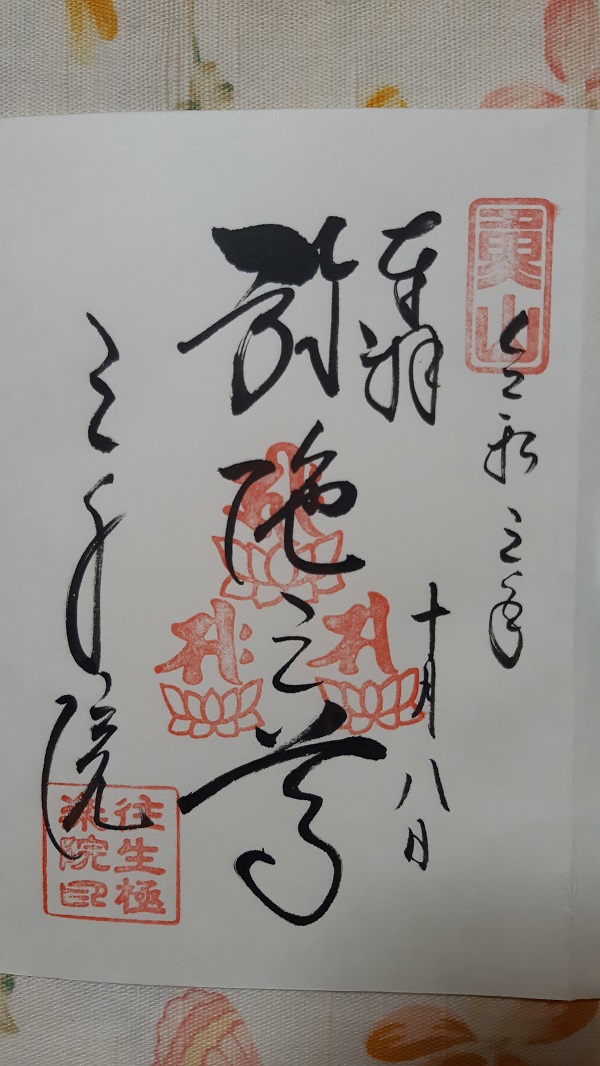 魚山
令和三年
十月八日
奉拝
弥陀三尊
三千院
往生極
楽院印